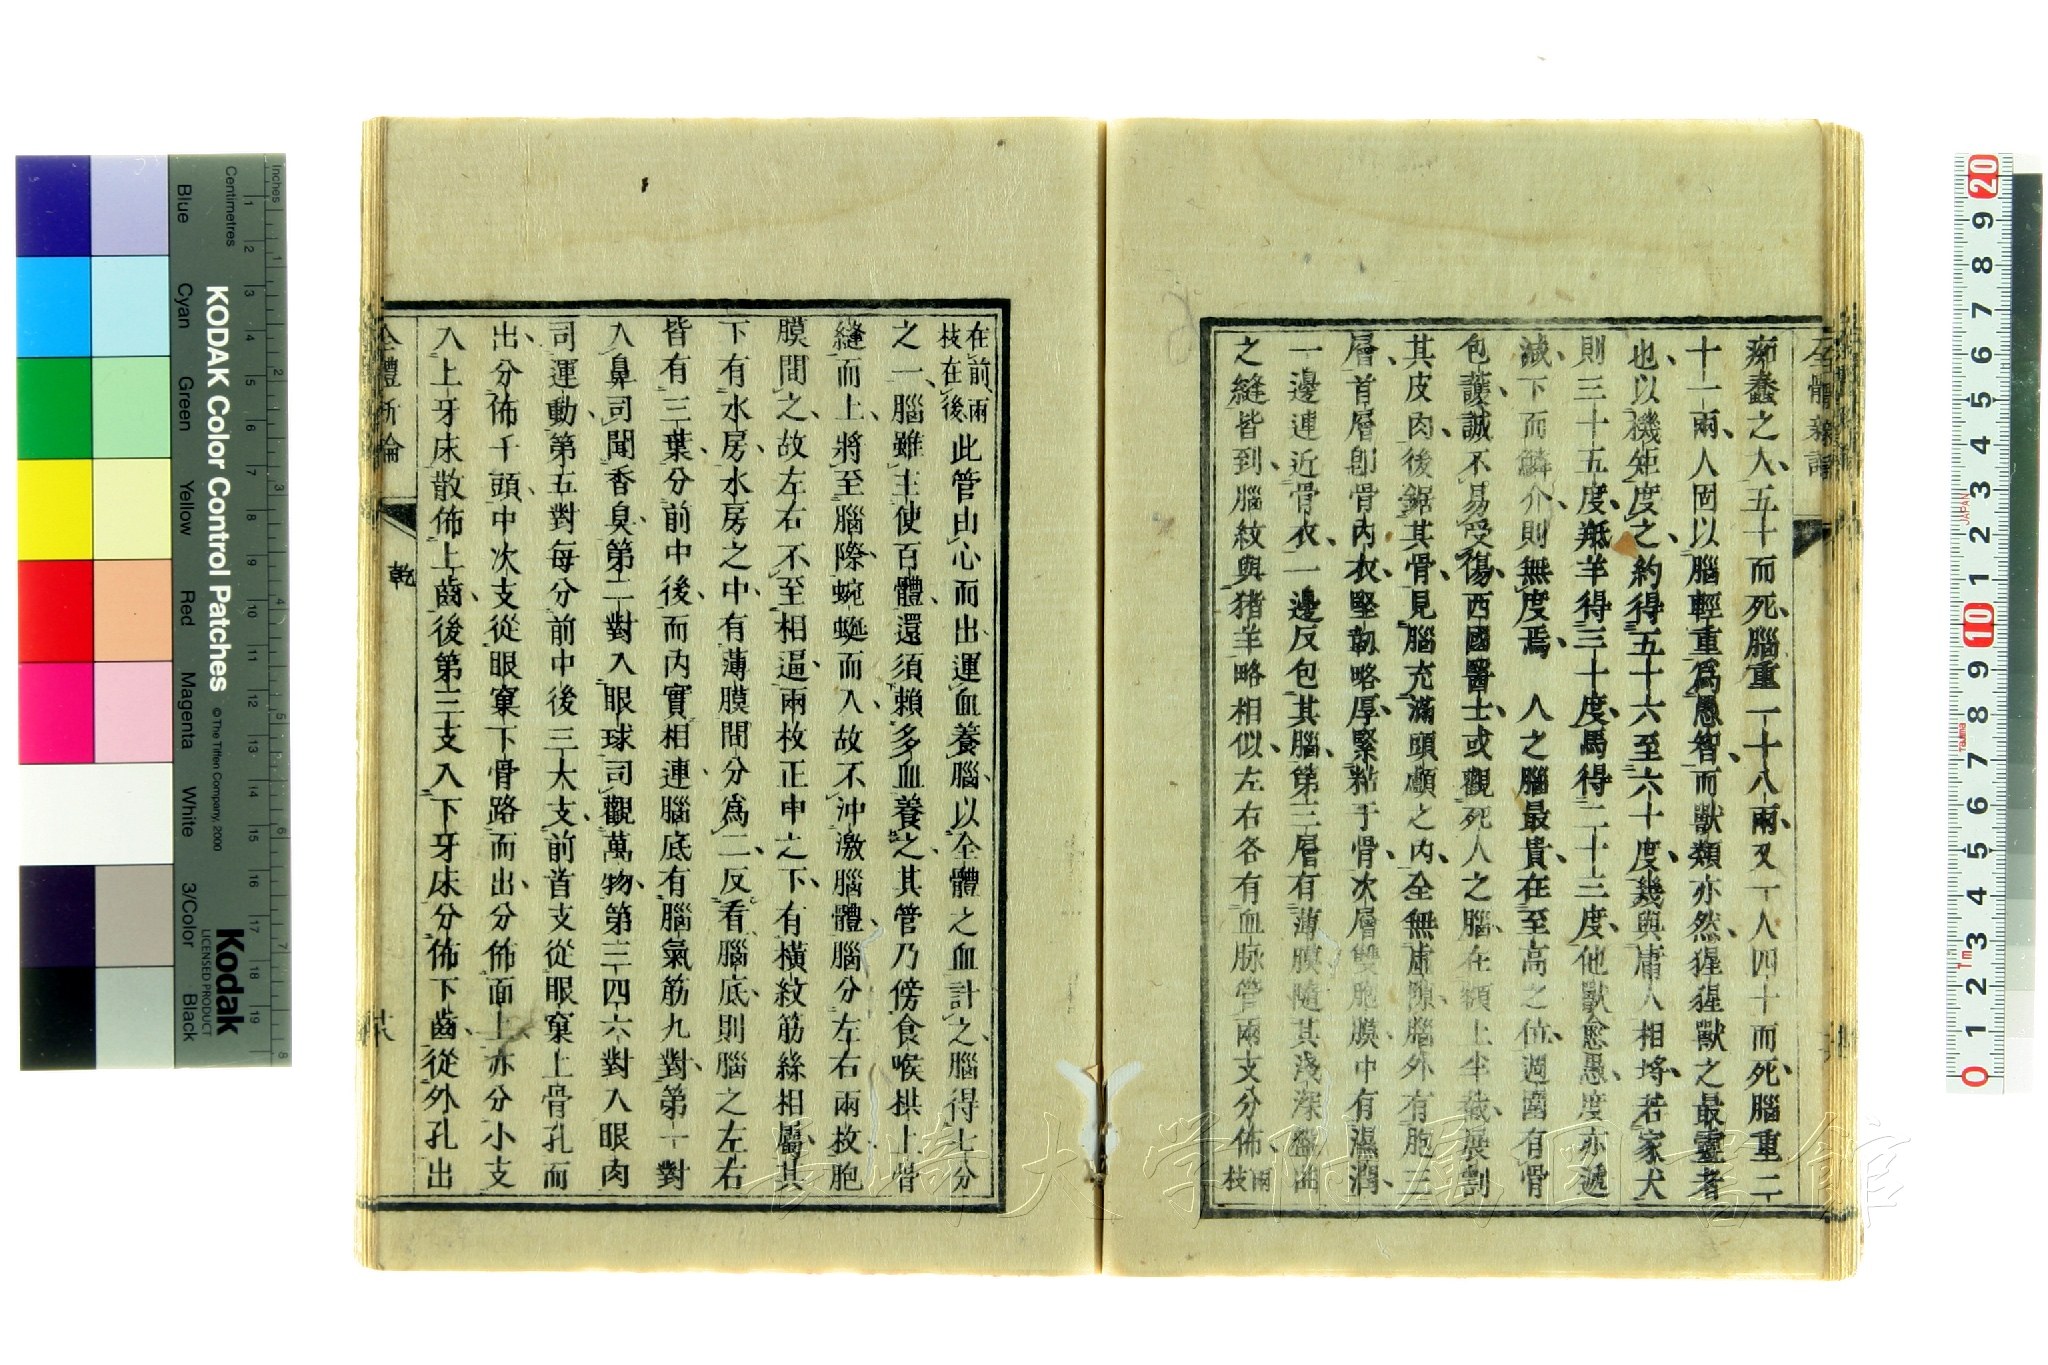 全體新論
痴蠢之人、五十而死、腦重一十八兩、又一人四十而死、腦重二
十一兩、人固以腦輕重爲愚智、而獸類亦然、猩猩獸之最靈者
也、以機矩度之、約得五十六至六十度、幾與庸人相埒、若家犬
則三十五度、羝羊得三十度、馬得二十三度、他獸愈愚、度亦遞
減、下而鱗介、則無度焉 人之腦最貴、在至高之位、週圍有骨
包護、誠不易受傷、西國醫士、或觀死人之腦、在額上半截、展割
其皮肉、後鋸其骨、見腦充滿頭顱之內、全無虛隙、腦外有胞三
層、首層卽骨內衣、堅韌略厚、緊粘于骨、次層雙胞膜、中有濕潤、
一邊連近骨衣、一邊反包其腦、第三層有薄膜、隨其淺深盤曲
之縫、皆到、腦紋與猪羊略相似、左右各有血脉管兩支分佈、兩枝
在前、兩枝在後、此管由心而出、運血養腦、以全體之血計之、腦得七分
之一、腦雖主使百體、還須賴多血養之、其管乃傍食喉拱上骨
縫而上、將至腦際、蜿蜒而入、故不沖激腦體、腦分左右兩枚、胞
膜間之、故左右不至相逼、兩枚正中之下、有橫紋筋絲相屬、其
下有水房、水房之中、有薄膜間分爲二、反看腦底、則腦之左右
皆有三葉、分前中後、而內實相連、腦底有腦氣筋九對、第一對
入鼻司聞香臭、第二對入眼球司觀萬物、第三四六對入眼肉
司運動、第五對每分前中後三大支、前首支從眼窠上骨孔而
出、分佈于頭、中次支從眼窠下骨路而出、分佈面上、亦分小支
入上牙床、散佈上齒、後第三支入下牙床、分佈下齒、從外孔出
全體新論
乾
Inches
Centimetres
KODAK Color Control Patches
© The Tiffen Company, 2000
Kodak
LICENSED PRODUCT
Blue
Cyan
Green
Yellow
Red
Magenta
White
3/Color
Black
1 2 3 4 5 6 7 8
1 2 3 4 5 6 7 8 9 10 11 12 13 14 15 16 17 18 19
0 1 2 3 4 5 6 7 8 9 10 1 2 3 4 5 6 7 8 9 20
JAPAN
Tajima
Tm
長崎大学附属図書館